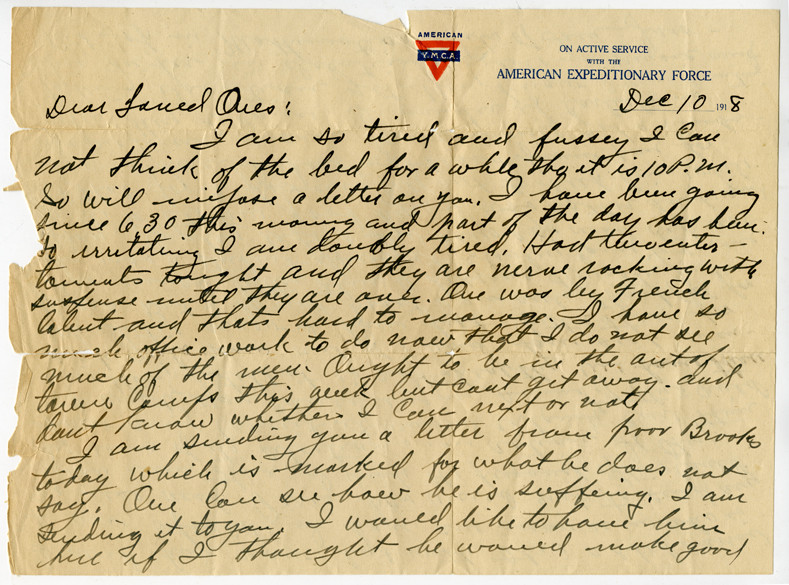 AMERICAN
Y.M.C.A.
ON ACTIVE SERVICE
WITH THE
AMERICAN EXPEDITIONARY FORCE
Dec 10 1918
Dear Loved Ones:
I am so tired and fussey I can
not think of the bed for a while tho it is 10 P.M.
So will impose a letter on you. I have been going
since 6.30 this morning and part of the day has been
so irritating I am doubly tired. Had two enter-
taments tonight and they are nerve racking with
suspense until they are over. One was by French
talent and thats hard to manage. I have so
much office work to do now that I do not see
much of the men. Ought to be in the out of
town camps this week but cant get away and
dont know whether I can next or not.
I am sending you a letter from poor Brooks
today which is marked for what he does not
say. One can see how he is suffering. I am
sending it to you. I would like to have him
here if I thought he would make good